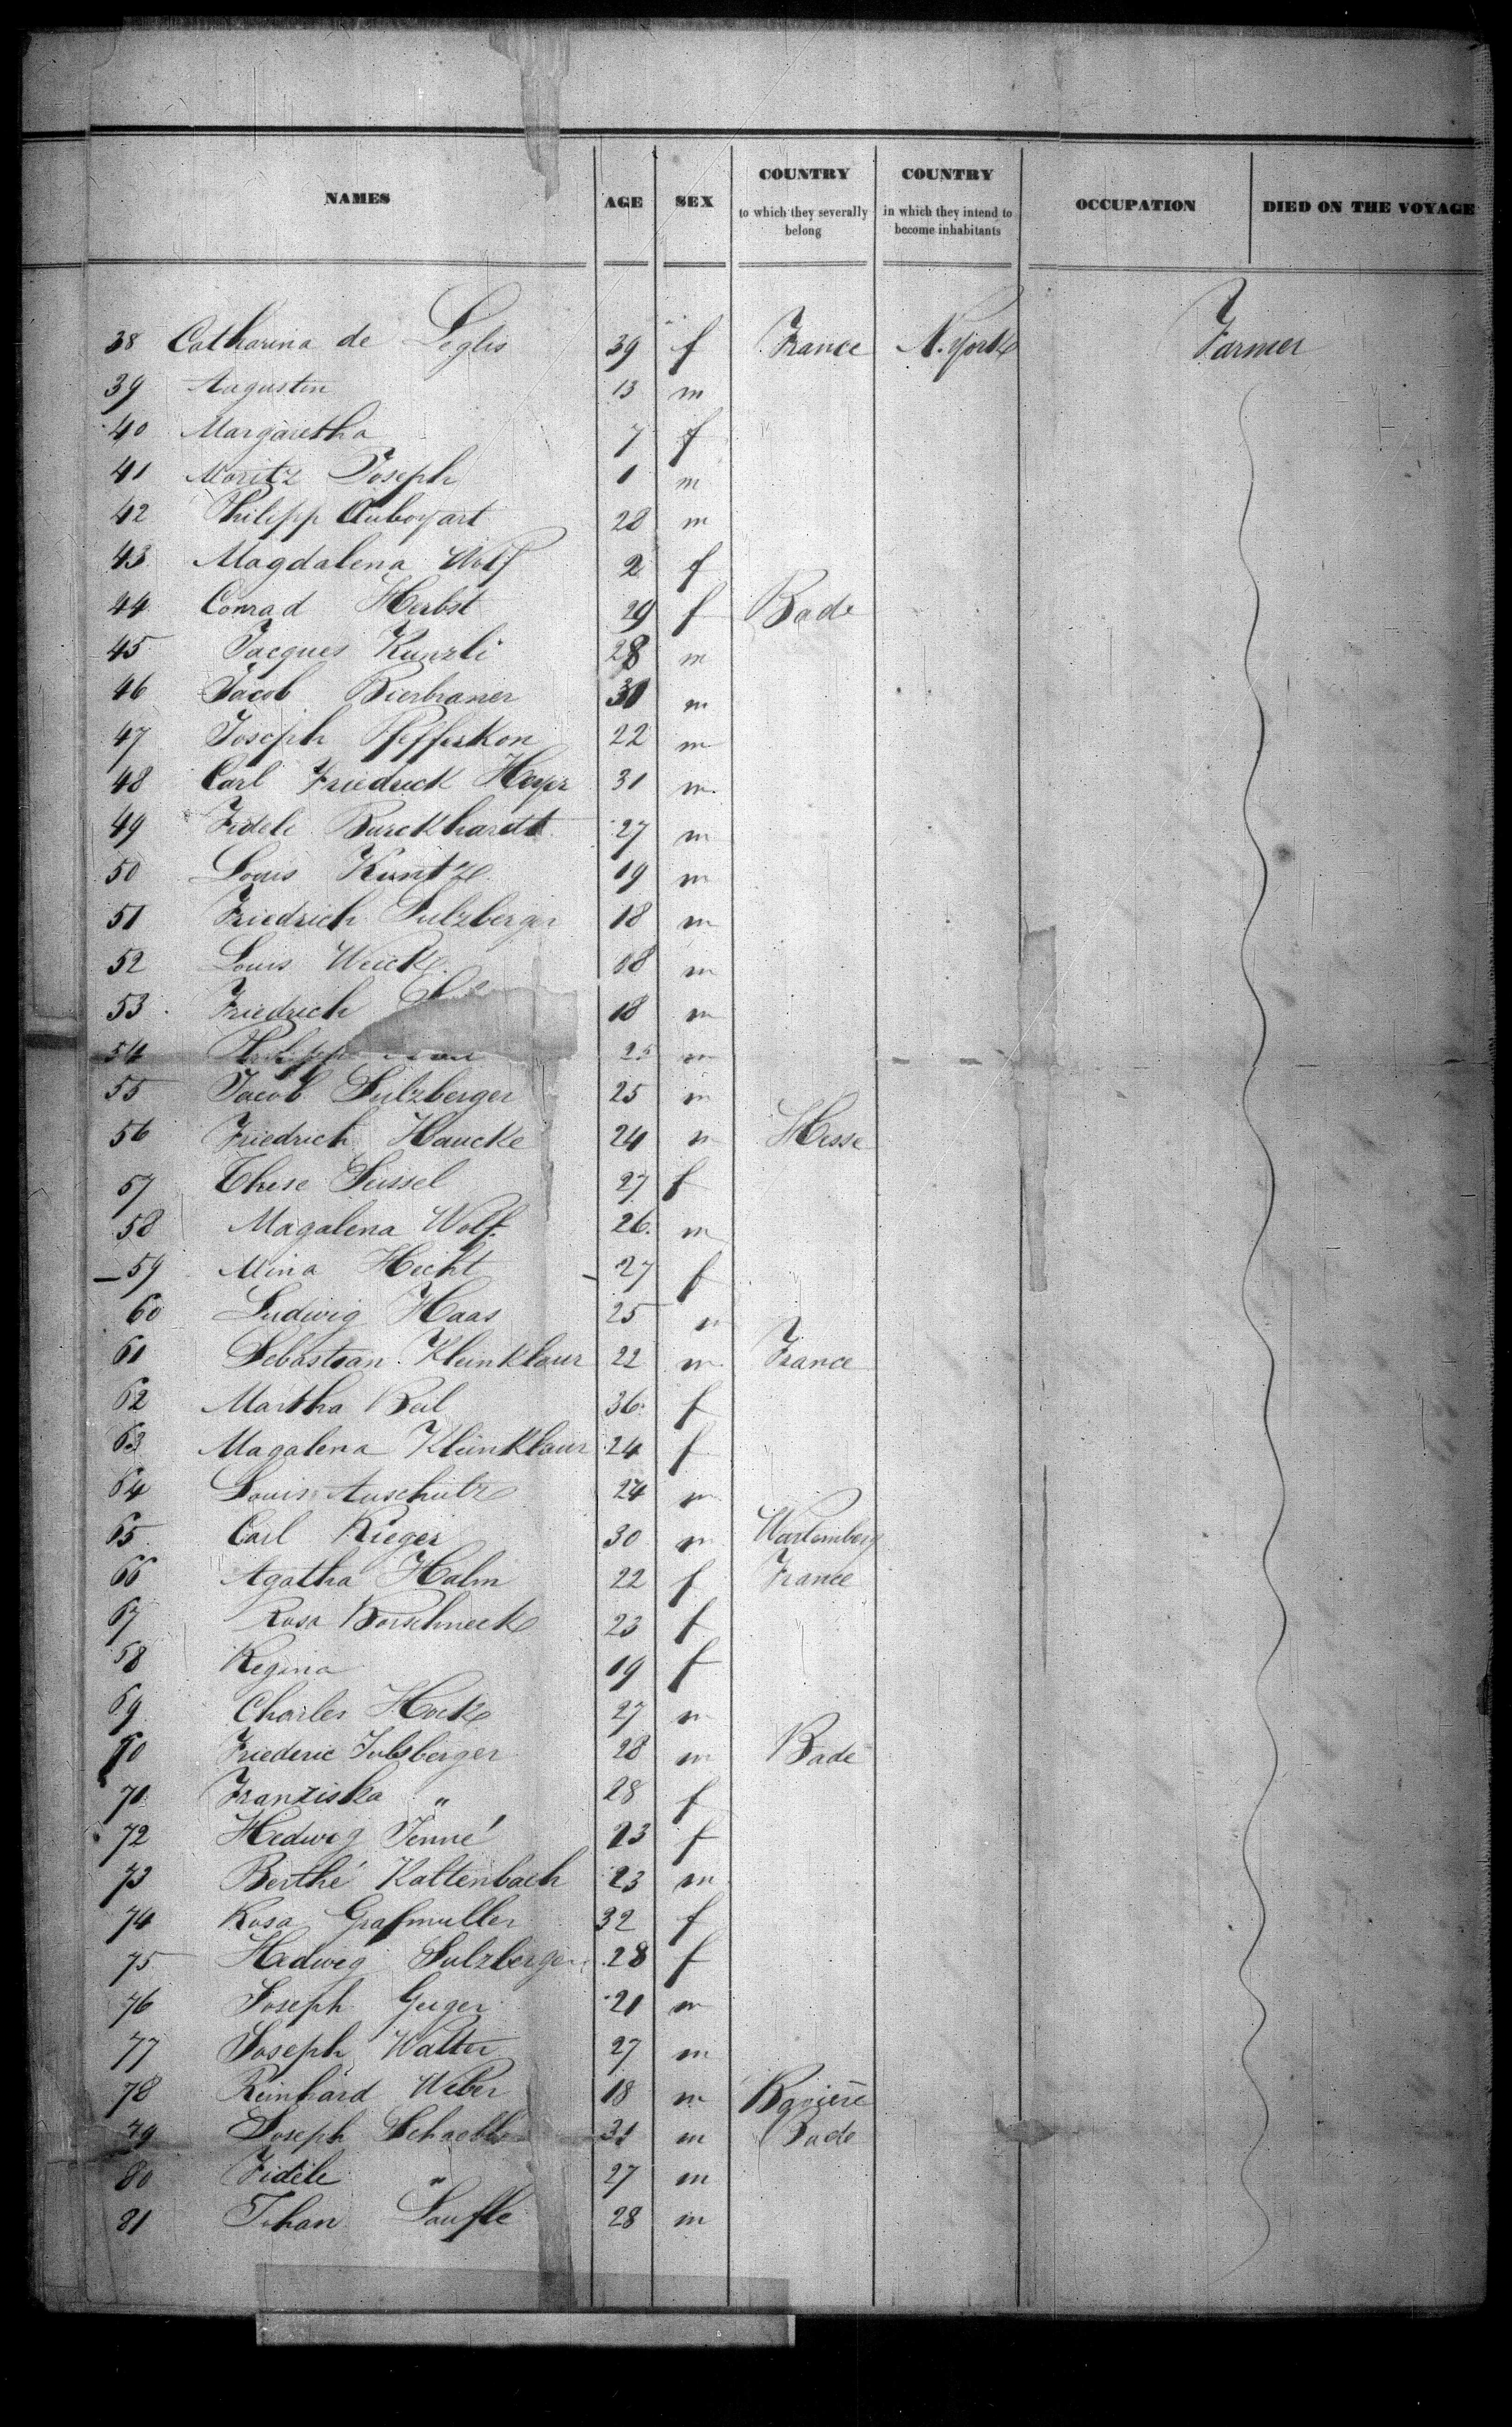 NAMES AGE SEX COUNTRY to which they severally belong COUNTRY in which they intend to become inhabitants OCCUPATION DIED ON THE VOYAGE
38 Catharina de Leglis 39 f France N. York Farmer
39 Augustin 13 m
40 Margaretha 7 f
41 Moritz Joseph 1 m
42 Philipp Auboyart 28 m
43 Magdalena Wolf 2 f
44 Conrad Herbst 29 f Bade
45 Jacques Kunzli 28 m
46 Jacob Bierbrauer 31 m
47 Joseph Pfefferkon 22 m
48 Carl Friedrick Hoyer 31 m
49 Fidele Burckhardt 27 m
50 Louis Kuntz 19 m
51 Friedrich Sulzberger 18 m
52 Louis Weick 18 m
53 Friedrich 18 m
54 Philipp 25 m
55 Jacob Sulzberger 25 m
56 Friedrich Haucke 24 m Hesse
57 These Seissel 27 f
58 Magalena Wolf 26 m
59 Mina Hecht 27 f
60 Ludwig Haas 25 m
61 Sebastian Kleinklaur 22 m France
62 Martha Beil 36 f
63 Magalena Kleinklaur 24 f
64 Louis Auschutz 24 m
65 Carl Rieger 30 m Wurtemberg
66 Agatha Halm 22 f France
67 Rosa Borschneck 23 f
68 Regina 19 f
69 Charles Hock 27 m
70 Friederic Sulsberger 28 m Bade
71 Franziska " 28 f
72 Hedwig Jenné 23 f
73 Berthé Kaltenbach 23 m
74 Rosa Grafmuller 32 f
75 Hedwig Sulzberger 28 f
76 Joseph Geiger 21 m
77 Joseph Walter 27 m
78 Reinhard Weber 18 m Baviere
79 Joseph 31 m Bade
80 Fidèle " 27 m
81 Johan Laufle 28 m